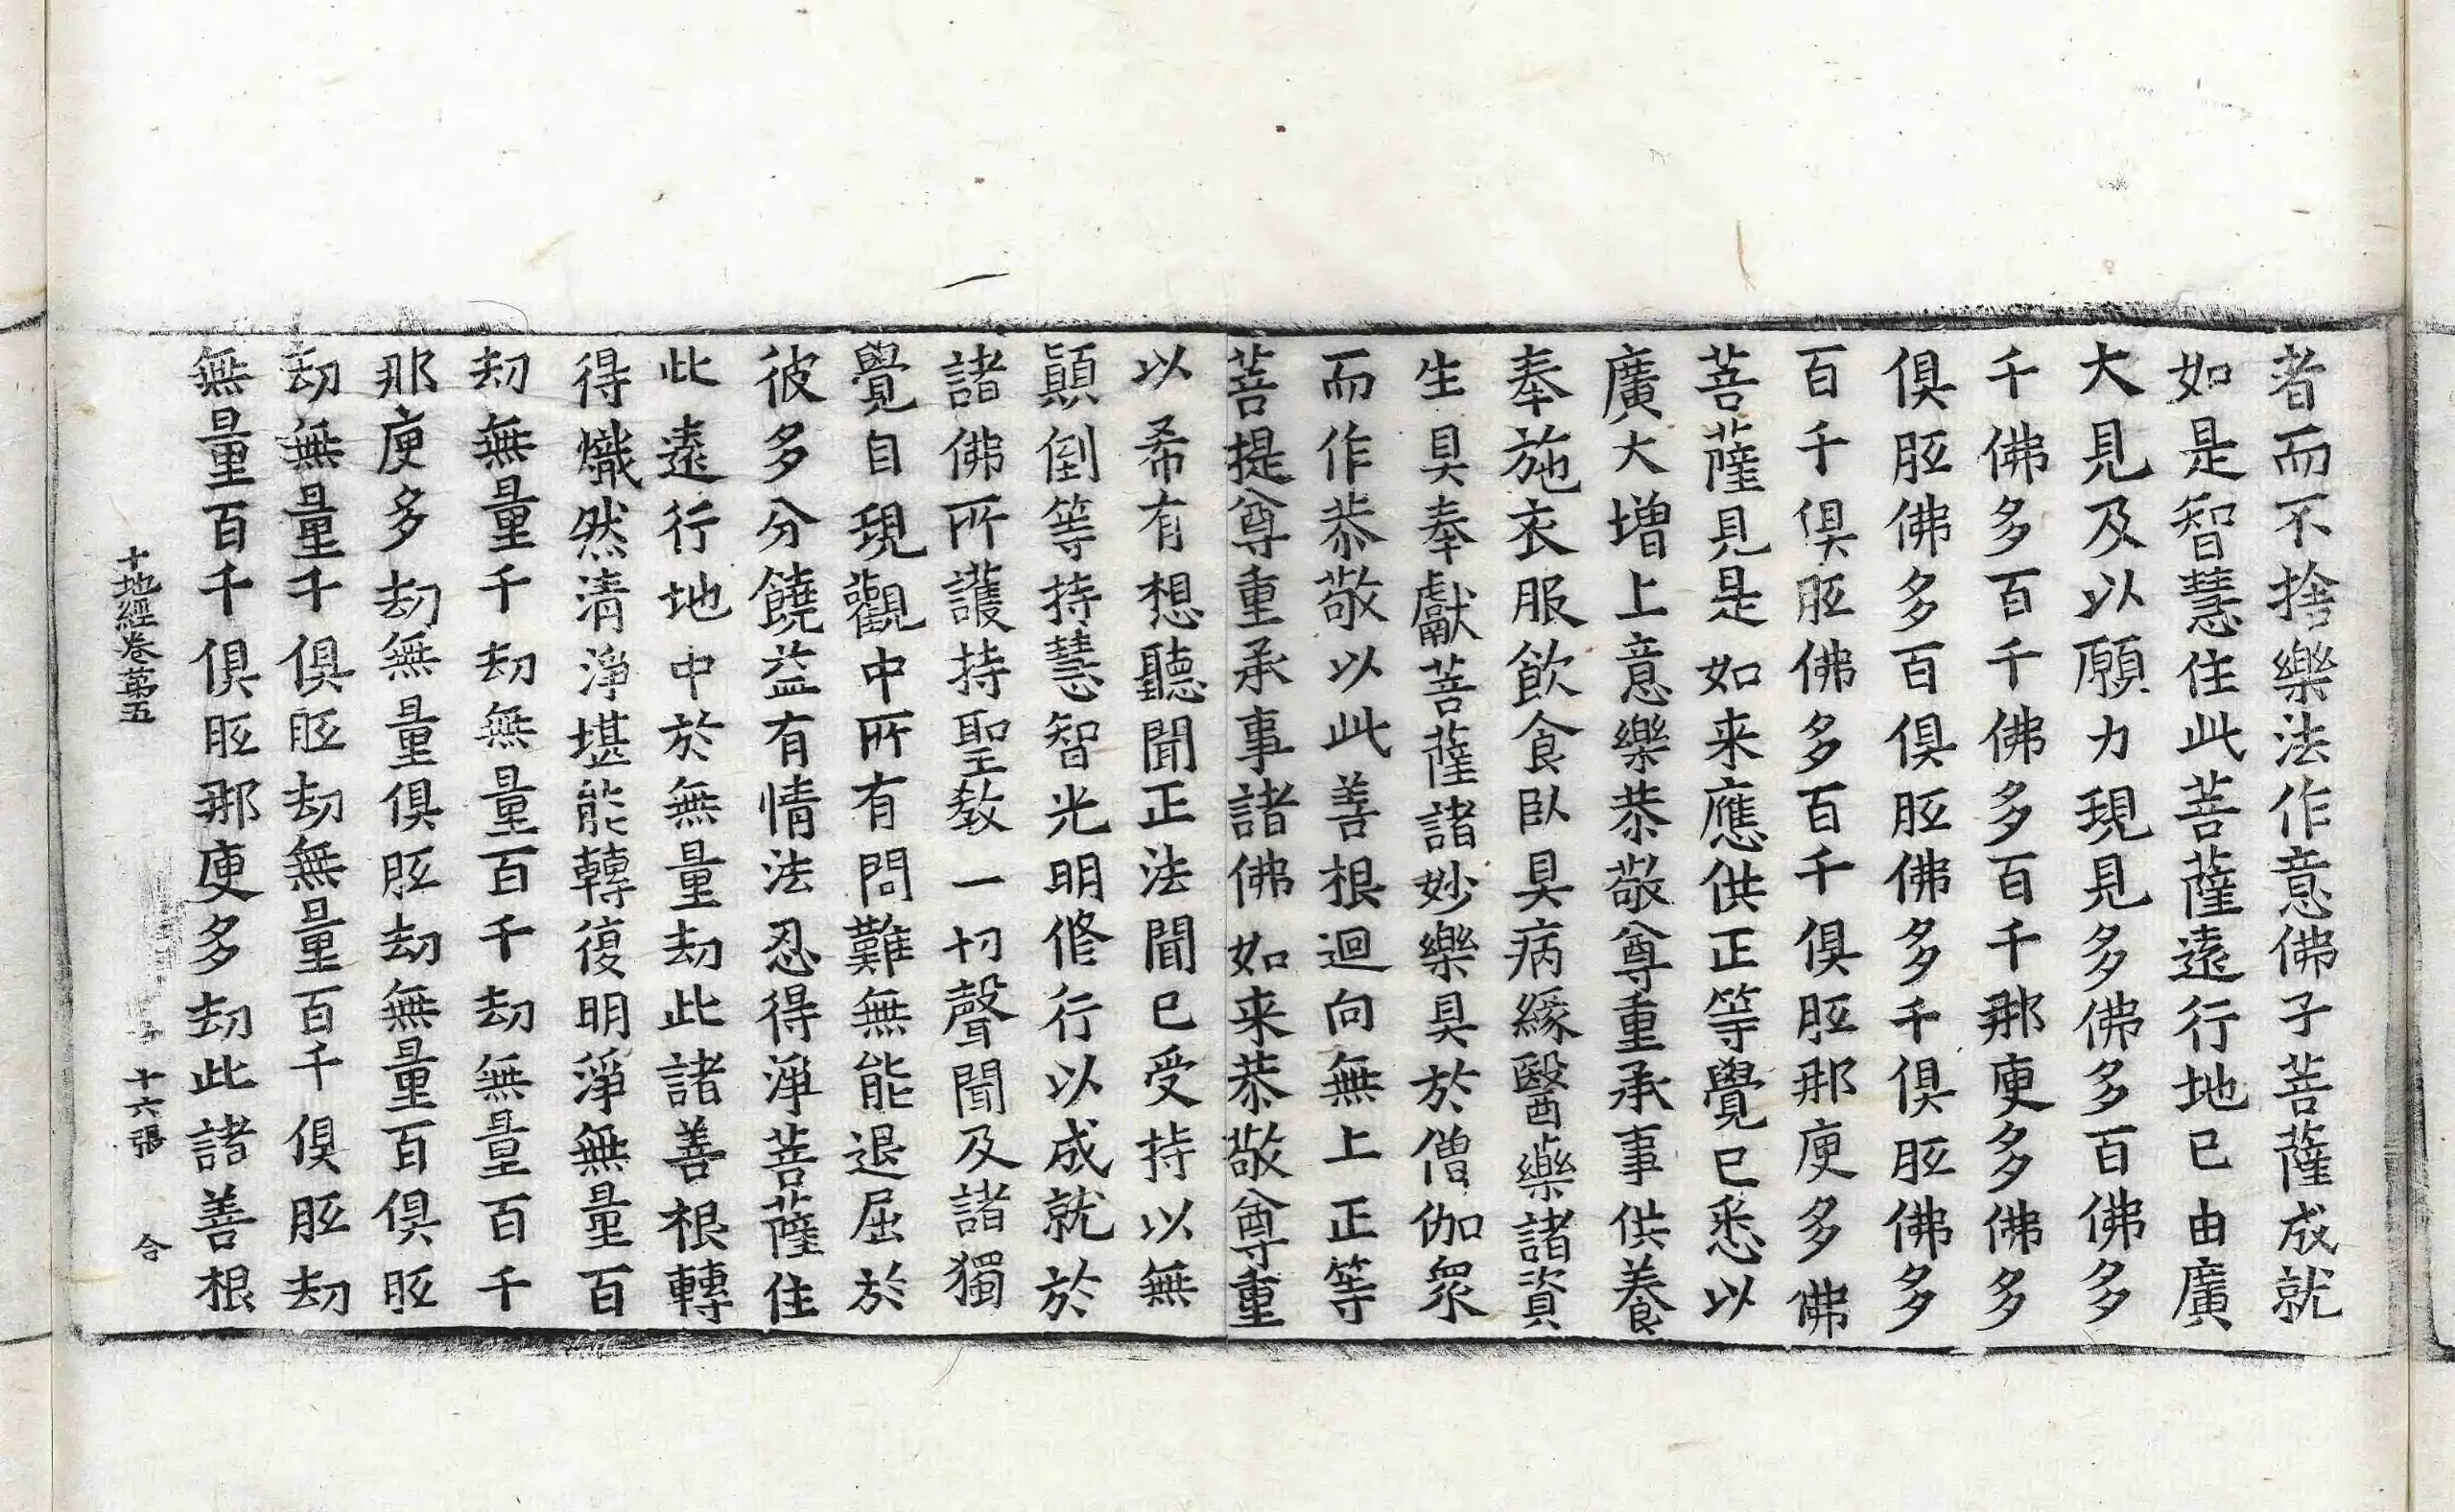 者而不捨樂法作意佛子菩薩成就
如是智慧住此菩薩遠行地已由廣
大見及以願力現見多佛多百佛多
千佛多百千佛多百千那庾多佛多
俱胝佛多百俱胝佛多千俱胝佛多
百千俱胝佛多百千俱胝那庾多佛
菩薩見是如来應供正等覺已悉以
廣大增上意樂恭敬尊重承事供養
奉施衣服飲食臥具病緣醫藥諸資
生具奉獻菩薩諸妙樂具於僧伽眾
而作恭敬以此善根迴向無上正等
菩提尊重承事諸佛如来恭敬尊重
以希有想聽聞正法聞已受持以無
顛倒等持慧智光明修行以成就於
諸佛所護持聖教一切聲聞及諸獨
覺自現觀中所有問難無能退屈於
彼多分饒益有情法忍得淨菩薩住
此遠行地中於無量劫此諸善根轉
得熾然清淨堪能轉復明淨無量百
劫無量千劫無量百千劫無量百千
那庾多劫無量俱胝劫無量百俱胝
劫無量千俱胝劫無量百千俱胝劫
無量百千俱胝那庾多劫此諸善根
十地經卷第五 十六張 合